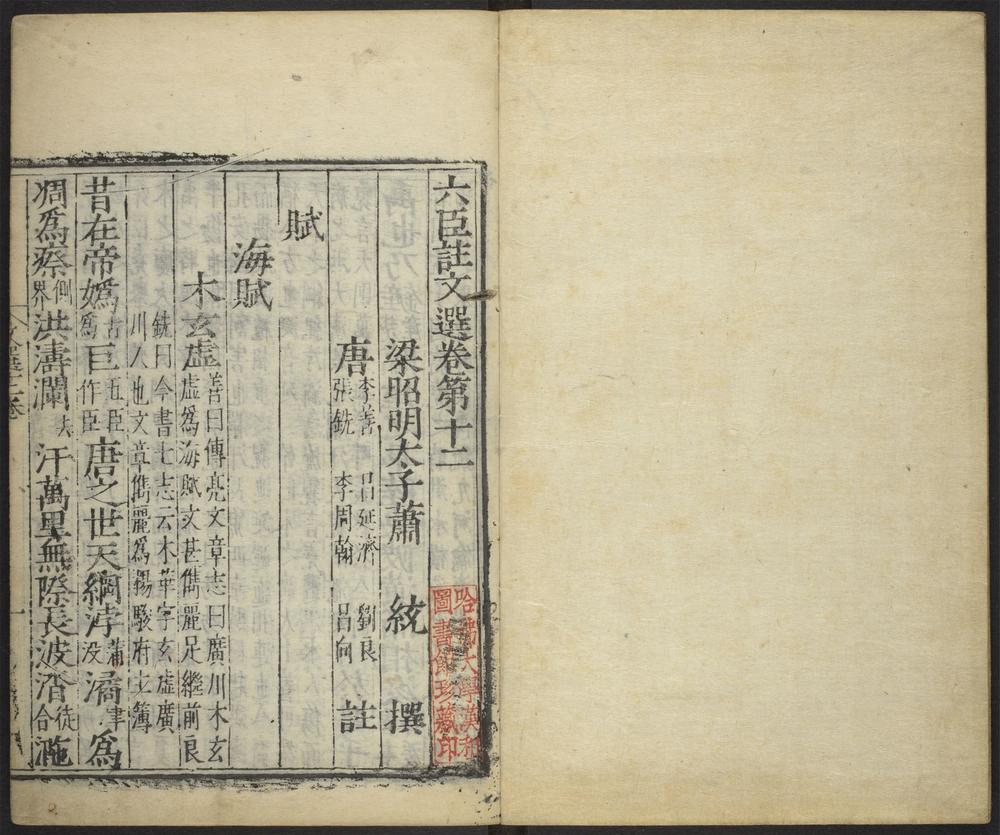 六臣註文選卷第十二
哈佛大學漢和
圖書館珍藏印
梁昭明太子蕭 統 撰
唐 李善 呂延濟 劉良
張銑 李周翰 呂向 註
賦
海賦
木玄虛 善曰傅亮文章志曰廣川木玄
虛爲海賦文甚儁麗足繼前良
銑曰今書七志云木華字玄虛廣
川人也文章儁麗爲揚駿府主簿
昔在帝嬀 巨五臣作臣唐之世天綱浡蒲沒潏聿爲
凋爲瘵側界洪濤瀾 汗萬里無際長波涾徒合